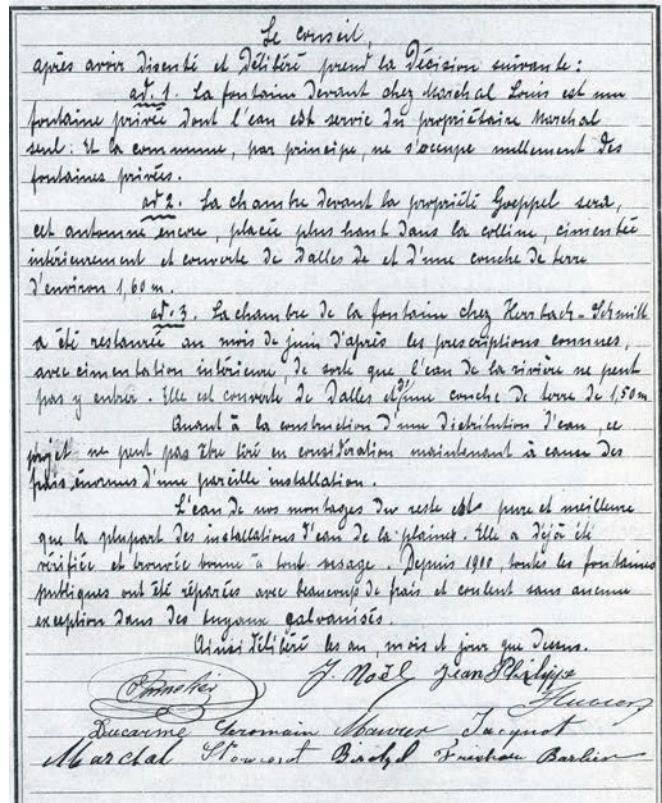 Le conseil,
après avoir discuté et délibéré prend la décision suivante :
ad. 1. La fontaine devant chez Marchal Louis est une
fontaine privée dont l'eau est servie du propriétaire Marchal
seul : Et la commune, par principe, ne s'occupe nullement des
fontaines privées.
ad 2. La chambre devant la propriété Goeppel sera,
cet automne encore, placée plus haut dans la colline, cimentée
intérieurement et couverte de dalles de et d'une couche de terre
d'environ 1,60 m.
ad. 3. La chambre de la fontaine chez Herrbach-Schmitt
a été restaurée au mois de juin d'après les prescriptions connues,
avec cimentation intérieure, de sorte que l'eau de la rivière ne peut
pas y entrer. Elle est couverte de dalles et d'une couche de terre de 1,50 m
Quant à la construction d'une distribution d'eau, ce
projet ne peut pas être tiré en considération maintenant à cause des
frais énormes d'une pareille installation.
L'eau de nos montages du reste est pure et meilleure
que la plupart des installations d'eau de la plaines. Elle a déjà été
vérifiée et trouvée bonne à tout usage. Depuis 1900, toutes les fontaines
publiques ont été réparées avec beaucoup de frais et coulent sans aucune
exception dans des tuyaux galvanisés.
Ainsi délibéré les an, mois et jour que dessus.
J. Noël Jean Philippe
Ducarme Germain Maurer Jacquot
Marchal Barbier